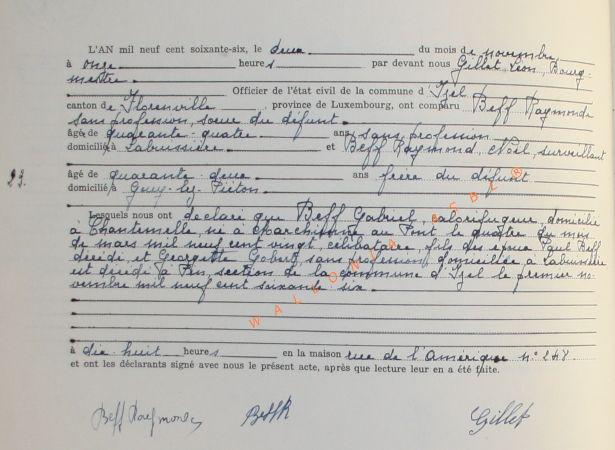 L'AN mil neuf cent soixante-six, le deux du mois de novembre,
à onze heures par devant nous Gillet, Léon, Bourg-
mestre. Officier de l'état civil de la commune d'Izel
canton de Florenville, province de Luxembourg, ont comparu Beff Raymonde
sans profession, soeur du défunt.
âgée de quarante-quatre ans, sans profession
domicilié à Labuissière et Beff Raymond, Noël, surveillant
23.
âgé de quarante-deux ans frère du défunt
domicilié à Gouy-lez-Piéton.
Lesquels nous ont déclaré que Beff Gabriel, calorifugeur, domicilié
à Chantemelle, né à Marchienne au Pont le quatre du mois
de mars mil neuf cent vingt, célibataire, fils des époux Paul Beff
décédé, et Georgette Gobert, sans profession, domiciliée à Labuissière
est décédé à Pin, section de la commune d'Izel le premier no-
vembre mil neuf cent soixante-six.
à dix-huit heures en la maison rue de l'Amérique n° 248
et ont les déclarants signé avec nous le présent acte, après que lecture leur en a été faite.
Beff Raymonde Beff R Gillet
WALLONIA ASBL